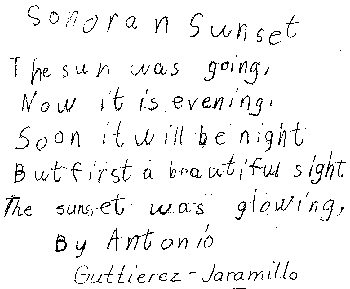 Sonoran Sunset
The sun was going,
Now it is evening.
Soon it will be night
But first a beautiful sight
The sunset was glowing,
By Antonio
Guttierez-Jaramillo